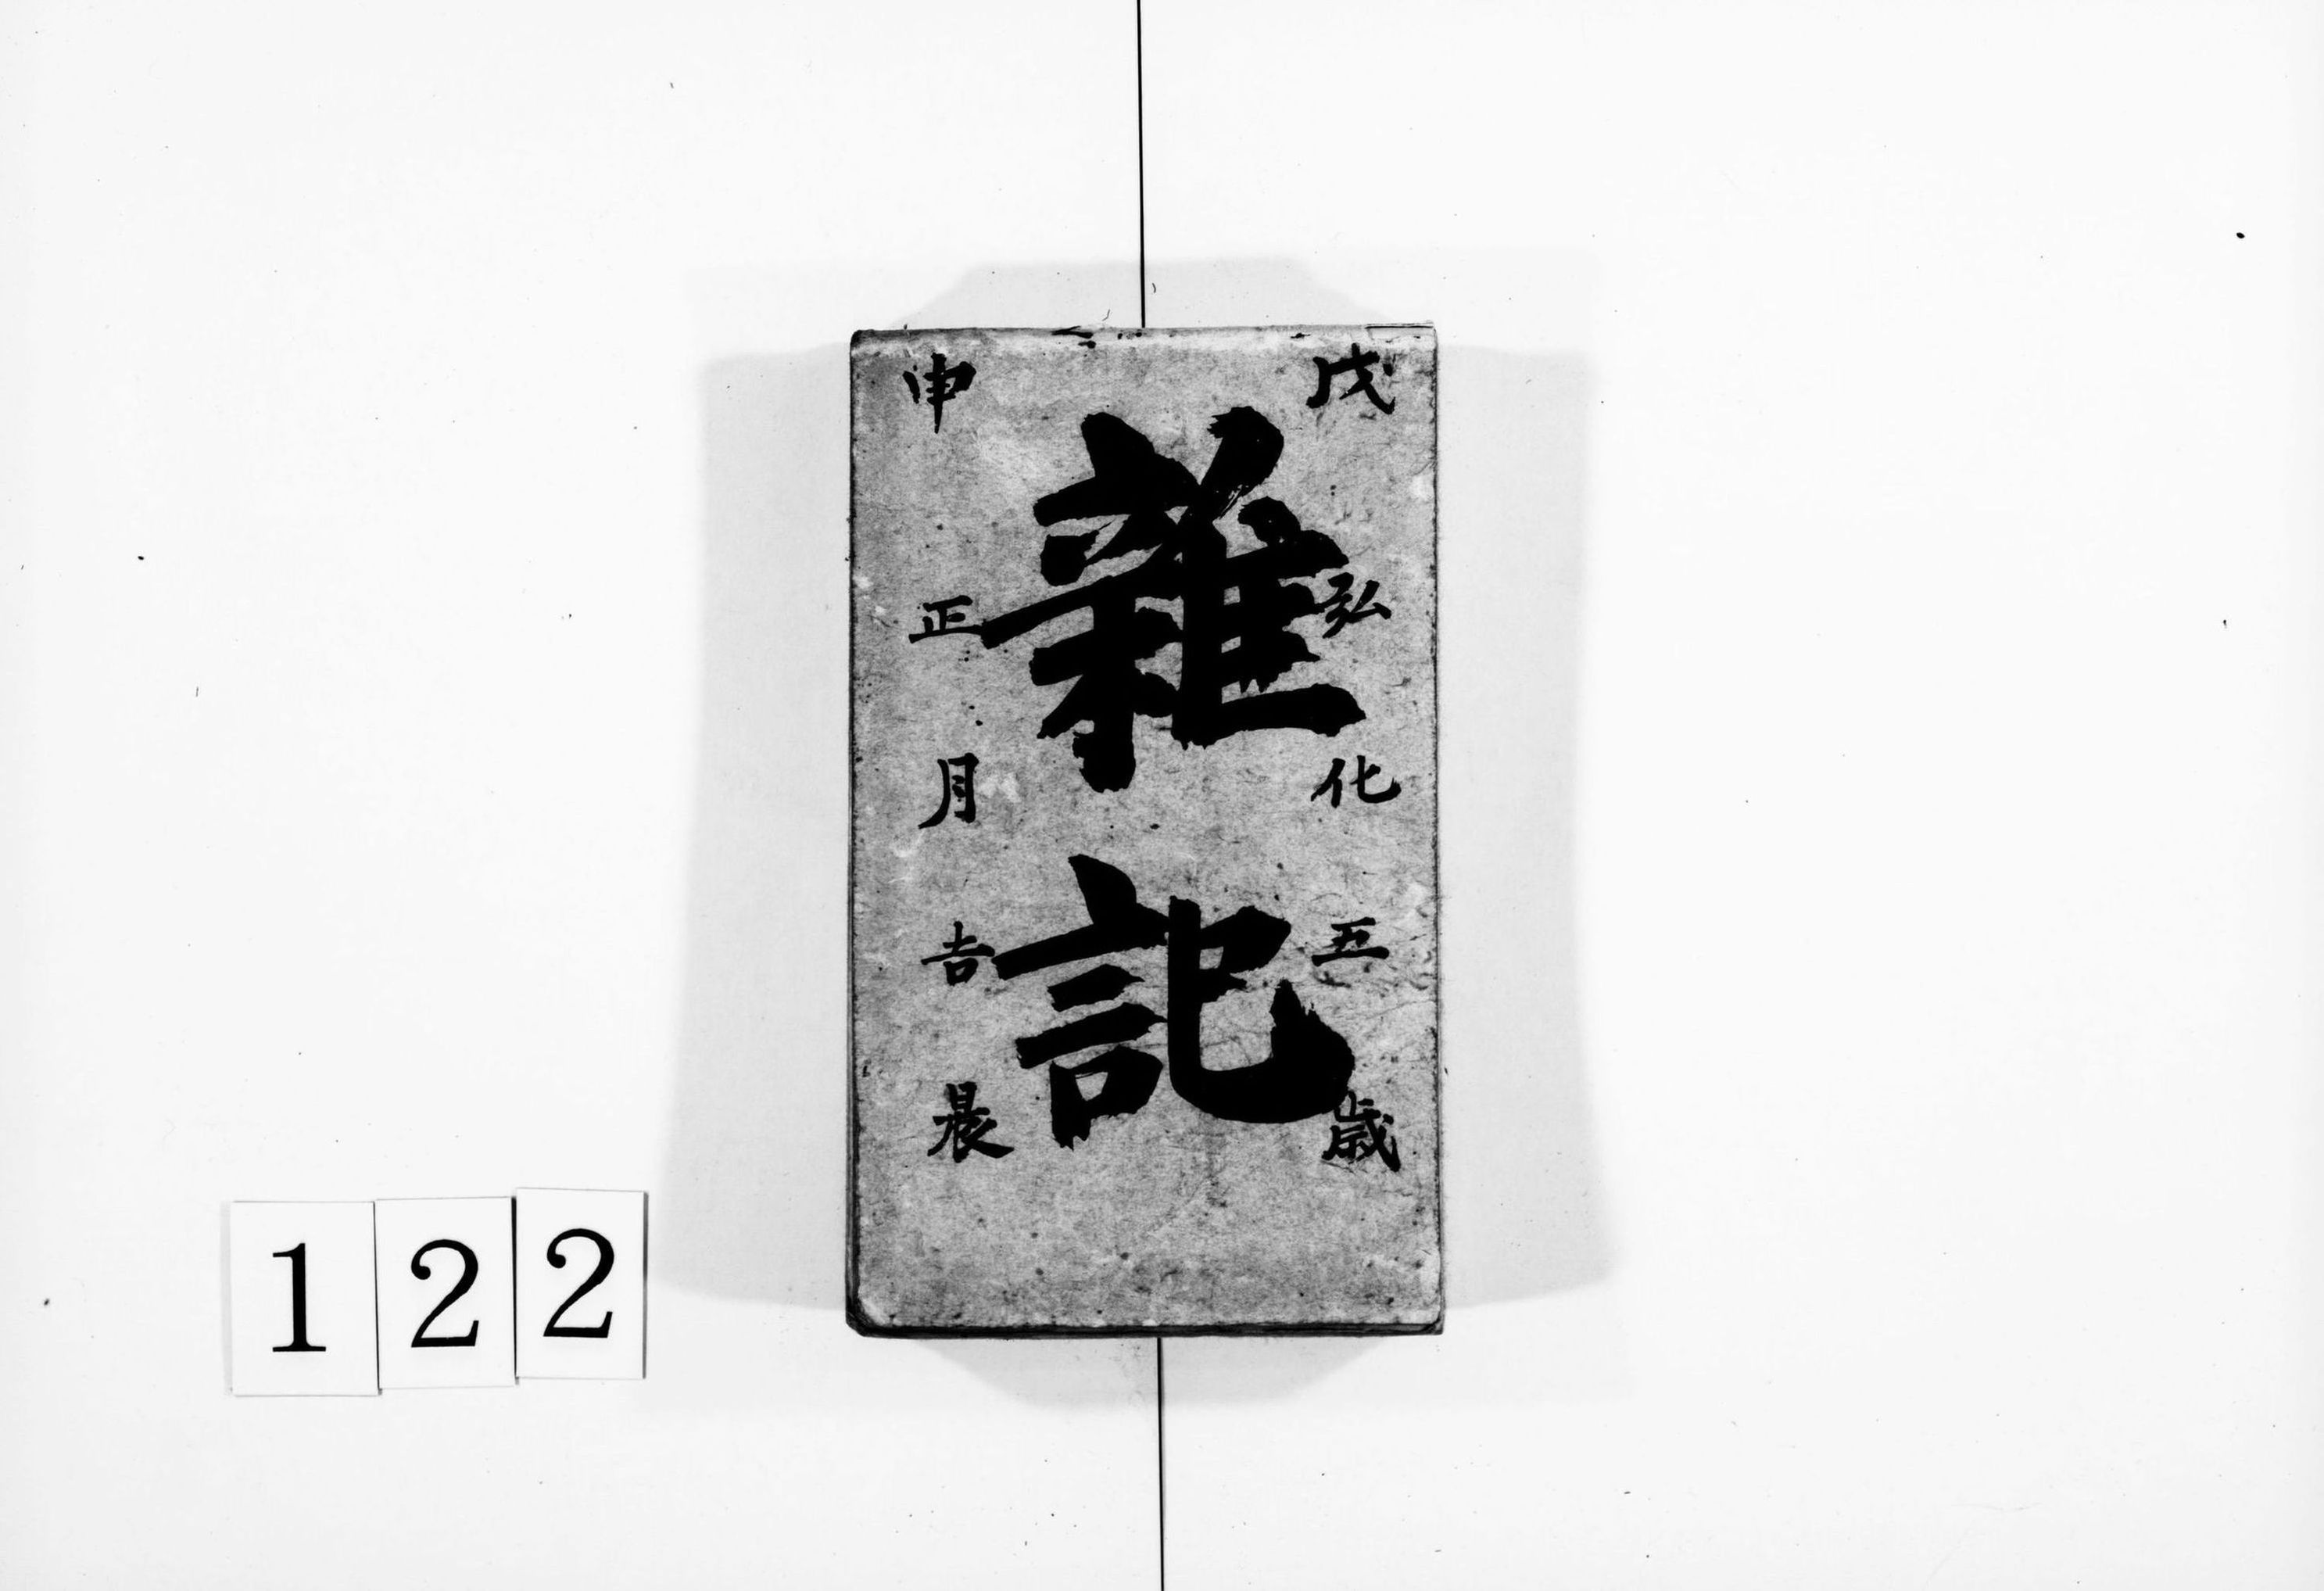 戊 申
弘化五歳
雑記
正月吉晨
122